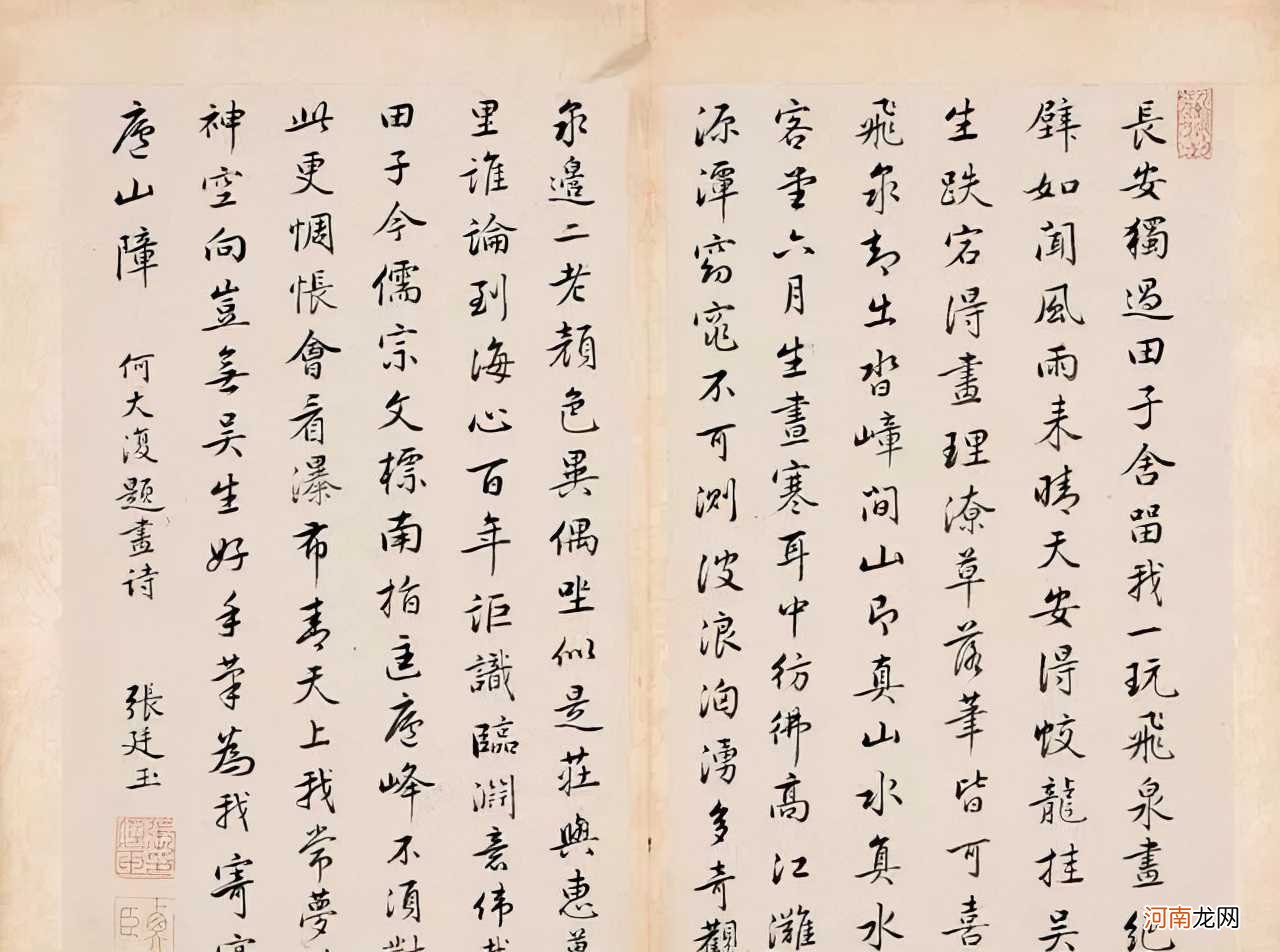 長安獨過田子舍留我一玩飛泉畫絕
壁如聞風雨来晴天安得蛟龍挂吴
生跌宕得畫理潦草落筆皆可喜
飛泉却出沓嶂間山即真山水真水
客堂六月生晝寒耳中彷彿高江灘
源潭窈窕不可測波浪洶湧多奇觀
泉邊二老顏色異偶坐似是莊與惠
里誰論到海心百年詎識臨淵意偉哉
田子今儒宗文標南指匡廬峰不須對
此更惆悵會看瀑布青天上我常夢
神空向豈無吴生好手筆為我寄寫
廬山障 何大復題畫诗 張廷玉
河南龙网